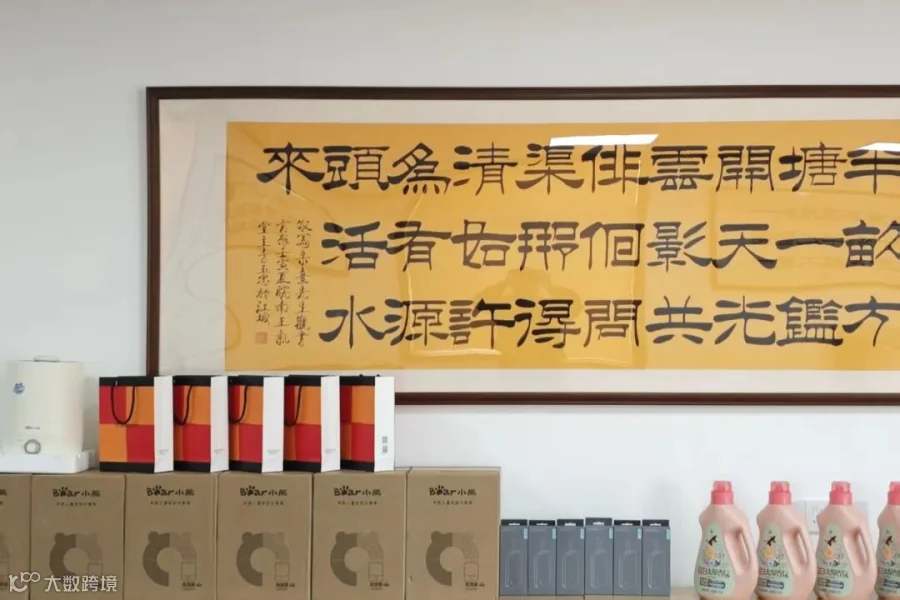 半畝方
塘一鑑
開天光
雲影共
俳佪問
渠那得
清如許
為有源
頭活水
來
朱熹先生觀書
Bear小熊
Bear小熊
Bear小熊
Bear小熊
Bear小熊
大数跨境